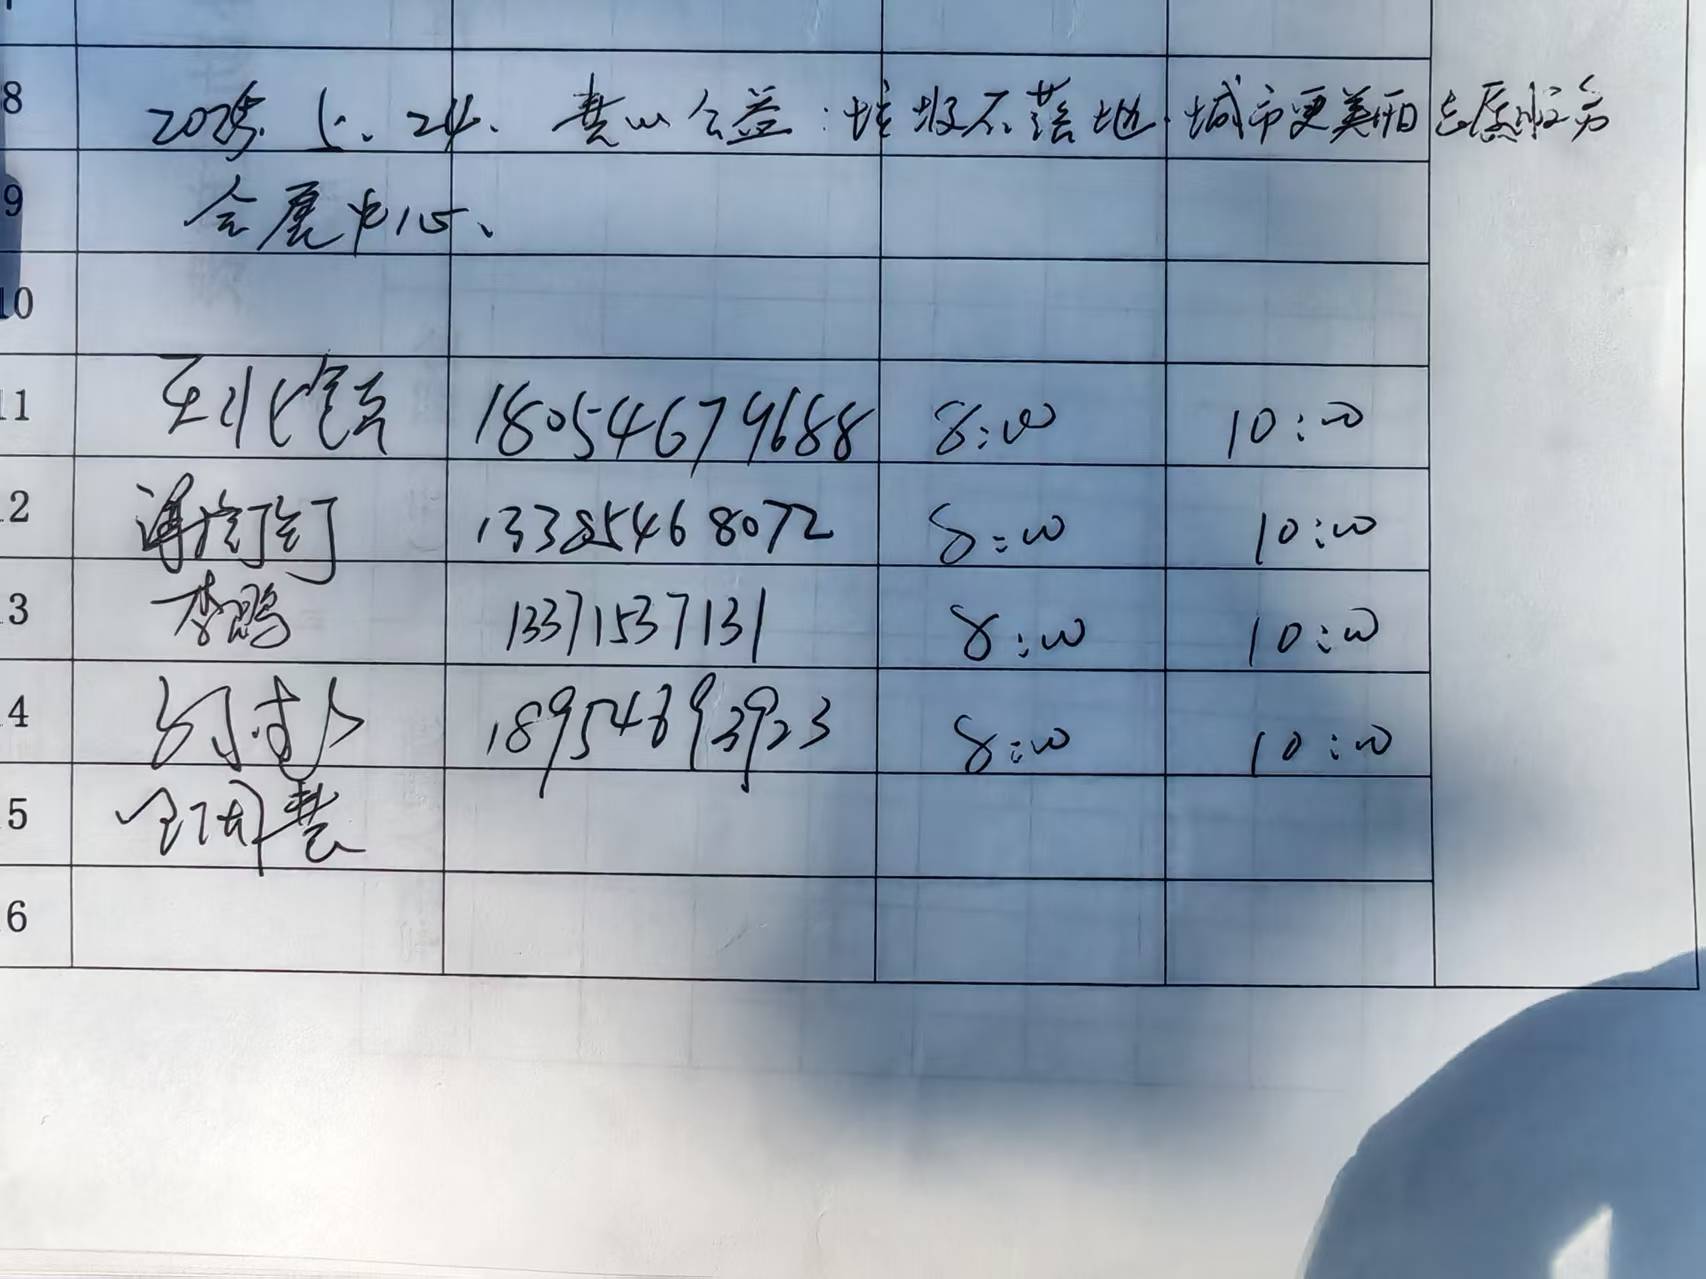 8 2025.5.24. 慧心公益:垃圾不落地 城市更美丽志愿服务
9 会展中心、
10
11 18054679688 8:00 10:00
2 薄钉钉 13385468072 8:00 10:00
3 李鹏 13371537131 8:00 10:00
4 18954693923 8:00 10:00
5
6